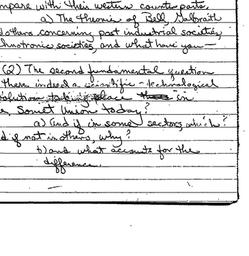 mpare with their western counterparts.
a) The theories of Bell, Galbraith
d others concerning post industrial societies,
chnotronic societies, and what have you—
(2) The second fundamental question
there indeed a scientific-technological
volution taking place in
e Soviet Union today?
a) And if in some sectors, which?
d if not in others, why?
b) and what accounts for the
difference.